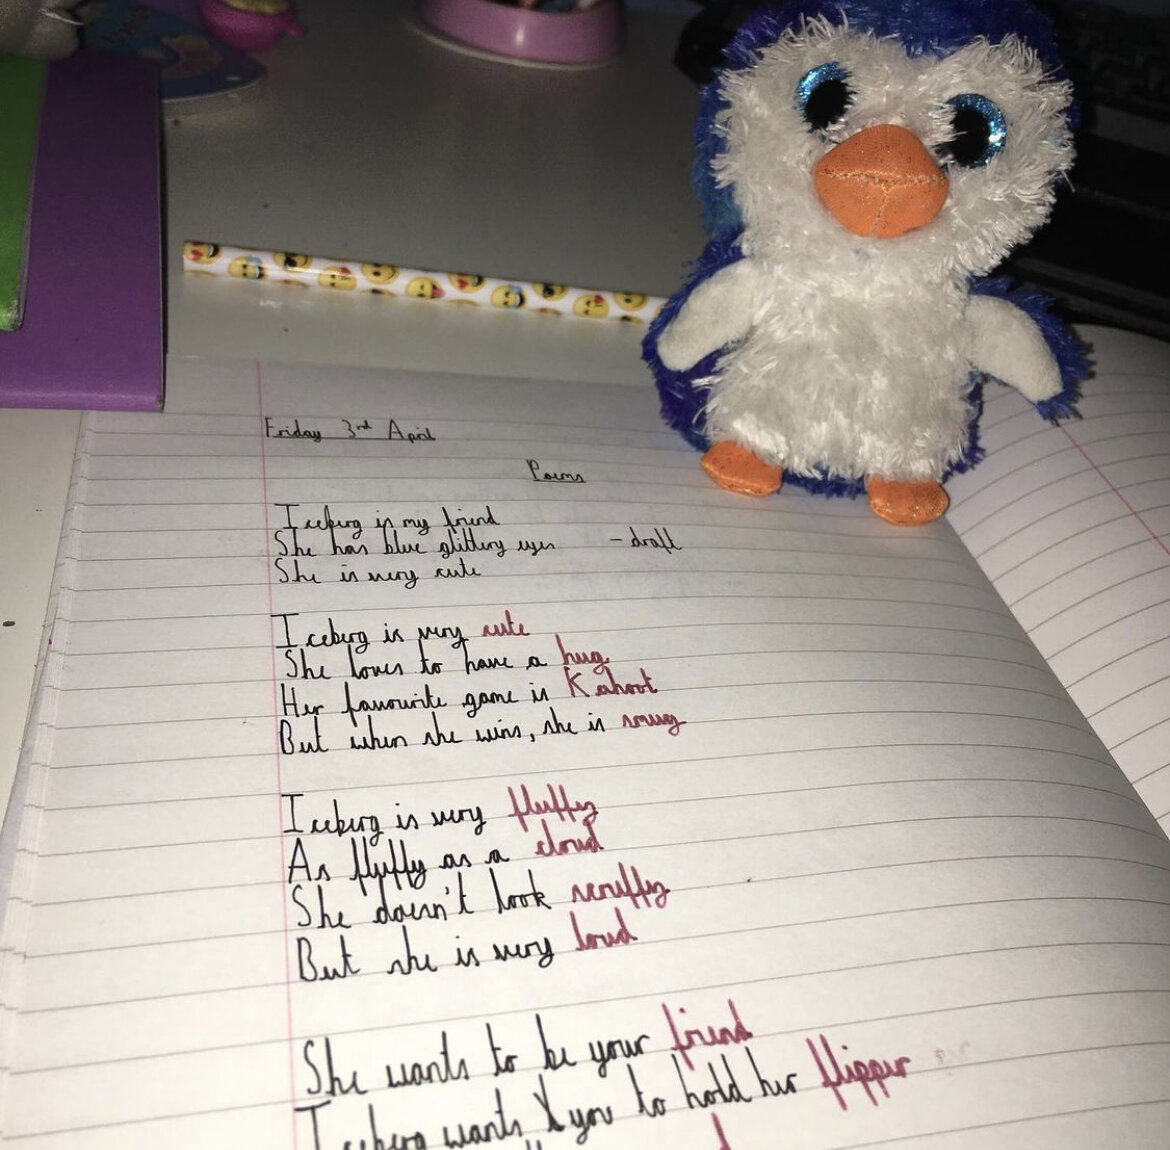 Friday 3rd April
Poems
Iceberg is my friend
She has blue glittery eyes - draft
She is very cute
Iceberg is very cute
She loves to have a hug
Her favourite game is Kahoot
But when she wins, she is smug
Iceberg is very fluffy
As fluffy as a cloud
She doesn't look scruffy
But she is very loud
She wants to be your friend
Iceberg wants you to hold her flipper